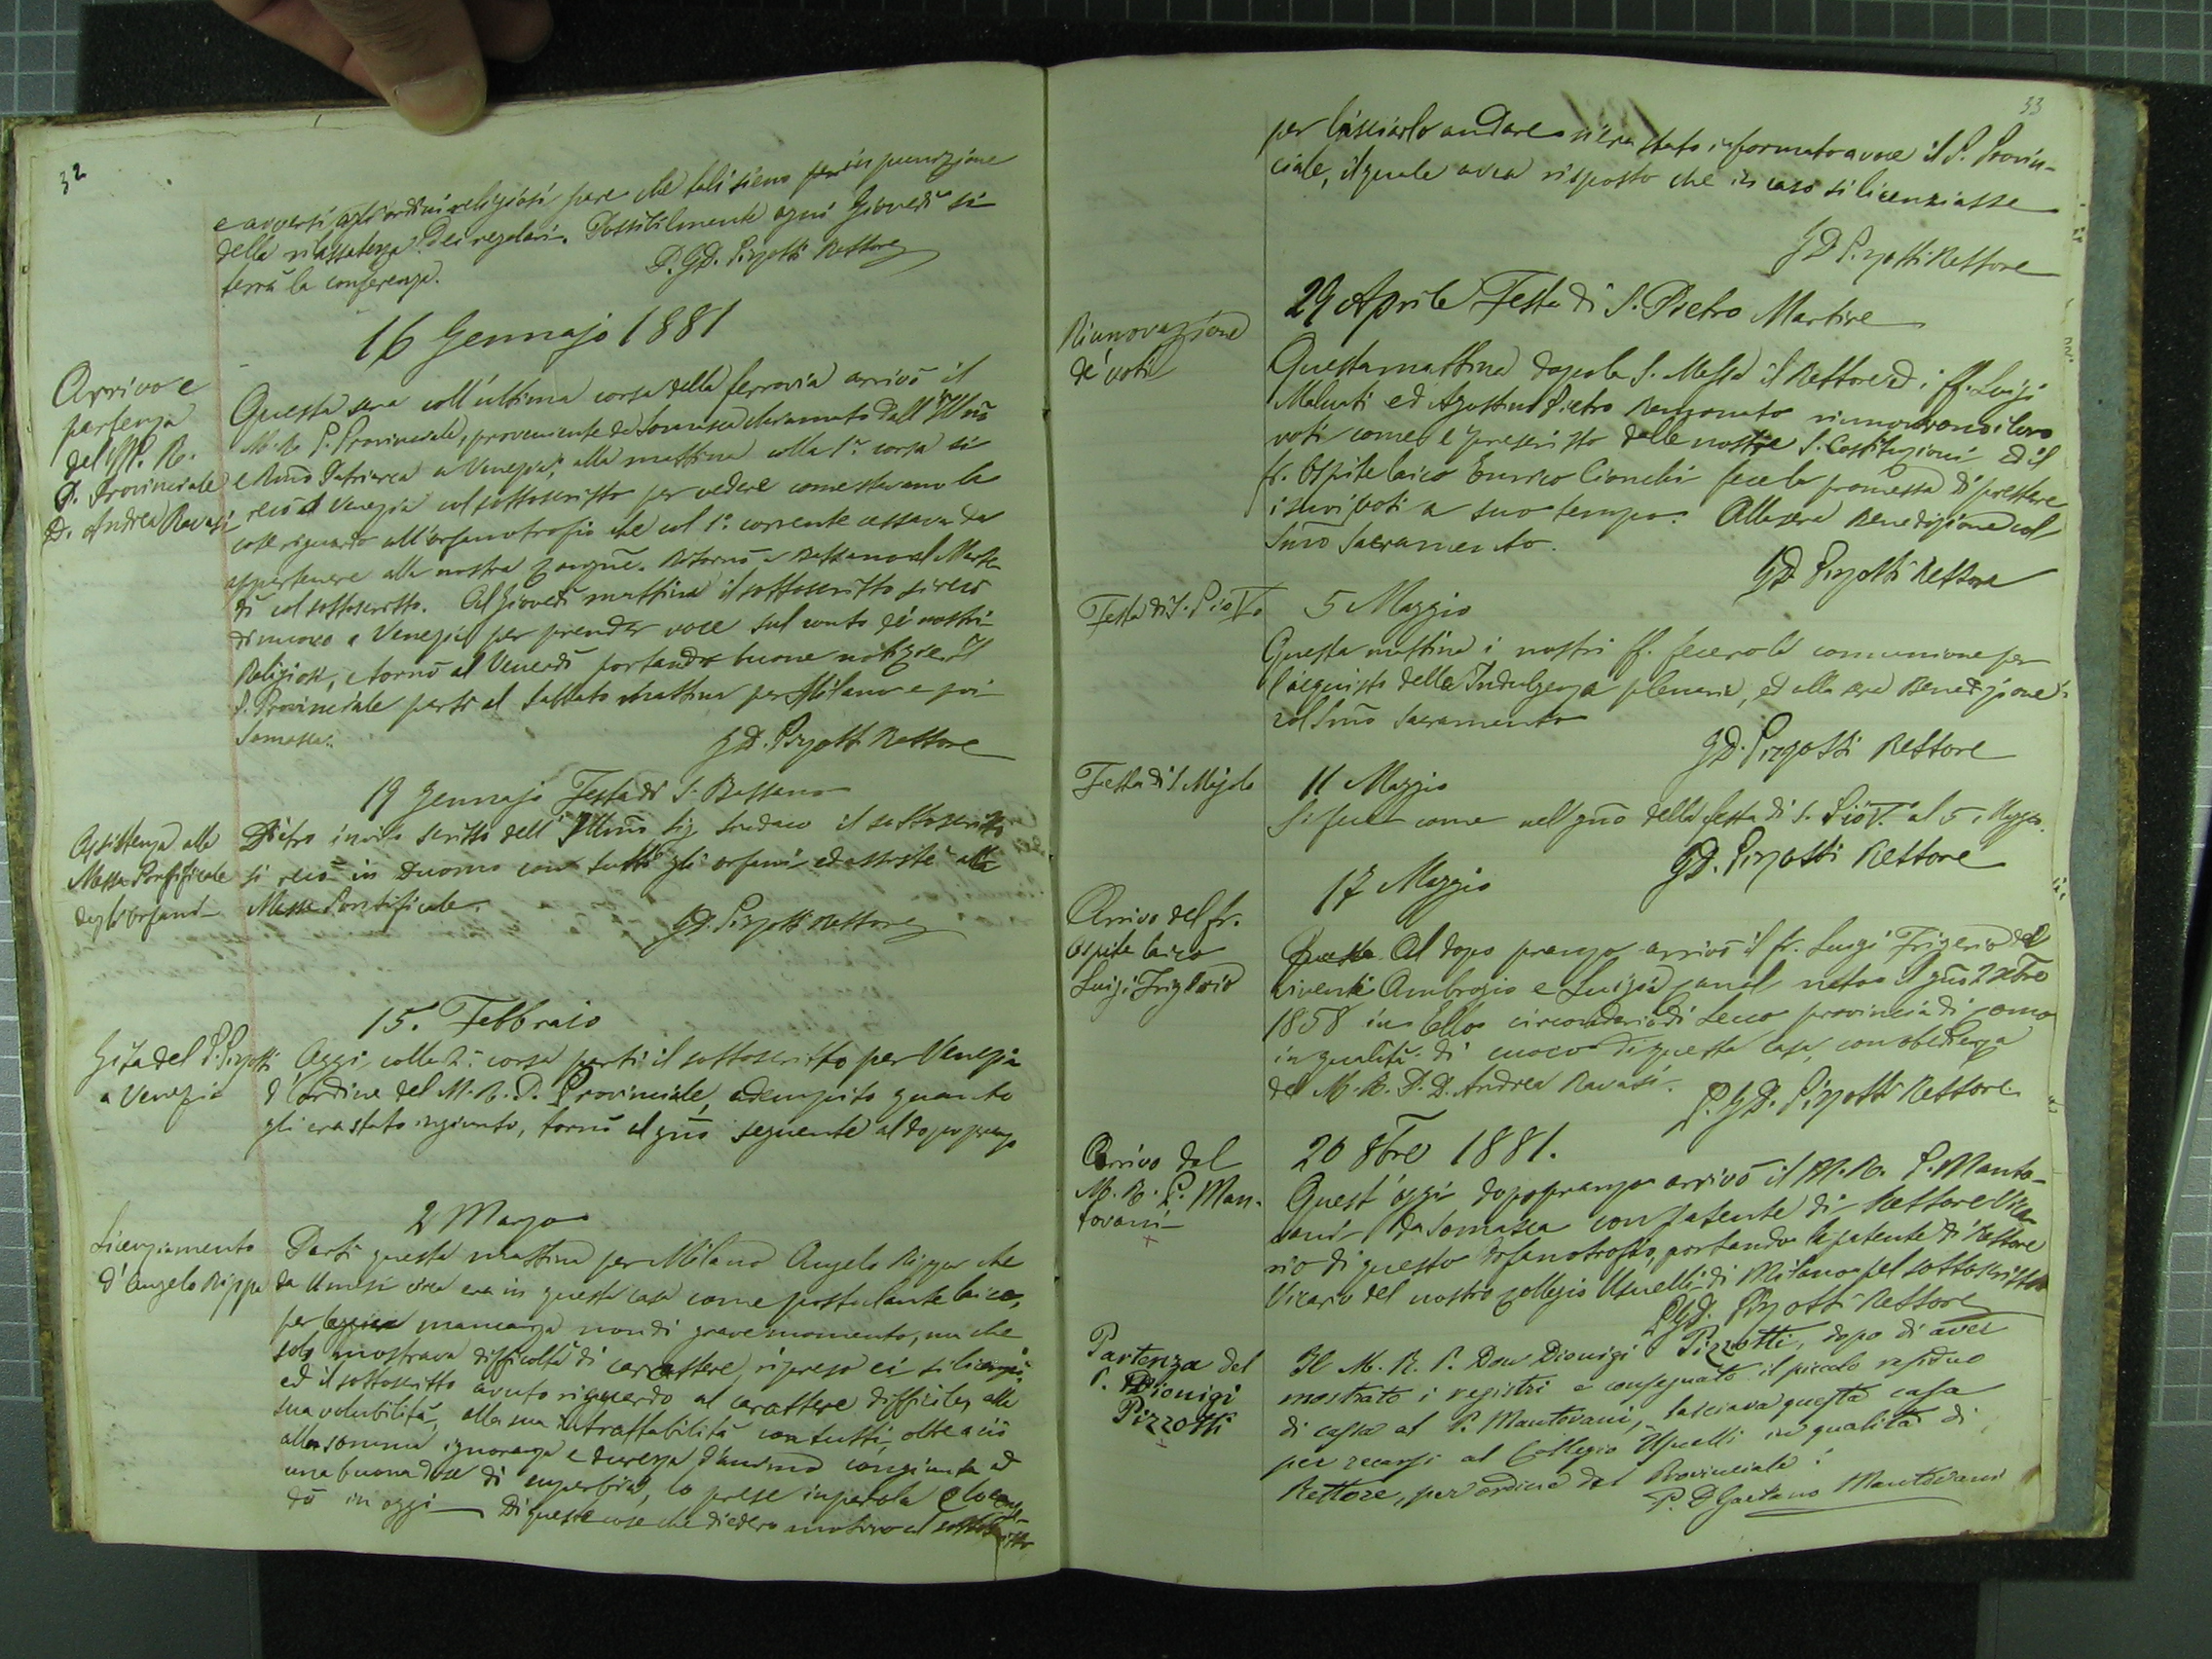 32
e avversi agli ordini religiosi pare che tali sieno in punizione
della rilassatezza dei regolari. Possibilmente ogni Giovedì si
terrà la conferenza.
P. G D. Pizzotti Rettore
16 Gennajo 1881
Arrivo e
partenza
del M. R.
P. Provinciale
D. Andrea Ravasi
Questa sera coll'ultima corsa della ferrovia arrivò il
M. R. P. Provinciale, proveniente da Somasca chiamato dall'Illmo
e Rmo Patriarca a Venezia; alla mattina colla 1a corsa si
recò a Venezia col sottoscritto per vedere come stavano le
cose riguardo all'orfanotrofio che col 1o corrente cessava da
appartenere alla nostra Congne. Ritornò a Bassano al Marte
dì col sottoscritto. Al Giovedì mattina il sottoscritto si recò
di nuovo a Venezia per prender voce sul conto de' nostri
Religiosi, e tornò al Venerdì portando buone notizie. Il
P. Provinciale partì al Sabbato mattina per Milano e poi
Somasca.
G D. Pizzotti Rettore
19 Gennajo Festa di S. Bassano
Assistenza alla
Messa Pontificale
degli orfani
Dietro invito scritto dell'Illmo Sig. Sindaco il sottoscritto
si recò in Duomo con tutti gli orfani ed assistè alla
Messa Pontificale.
G D. Pizzotti Rettore
15. Febbraio
Gita del P. Pizzotti
a Venezia
Oggi colla 2a corsa partì il sottoscritto per Venezia
d'ordine del M. R. P. Provinciale, adempito quanto
gli era stato ingiunto, tornò il gno seguente al dopo pranzo
2 Marzo
Licenziamento
d'Angelo Rippa
Partì questa mattina per Milano Angelo Rippa che
da mesi circa era in questa casa come postulante laico,
per mancanza non di grave momento, ma che
solo mostrava difficoltà di carattere, ripreso ei si licenziò,
ed il sottoscritto avuto riguardo al carattere difficile, alla
sua volubilità, alla sua intrattabilità con tutti, oltre a ciò
alla somma ignoranza e durezza d'animo congiunta ad
una buona dose di superbia, lo prese in parola e lo con-
dò in oggi Di queste cose che diedero motivo al sottoscritto
33
per lasciarlo andare n'era stato informato a voce il P. Provin-
ciale, il quale avea risposto che in caso si licenziasse
G D Pizzotti Rettore
29 Aprile Festa di S. Pietro Martire
Rinnovazione
de' voti
Questa mattina dopo la S. Messa il Rettore ed i ff. Luigi
Maluati ed Agostino Pietro Ranzonato rinnovarono i loro
voti come è prescritto dalle nostre S. Costituzioni ed il
fr. Ospite laico Enrico Cionchi fece la promessa di prestare
i suoi voti a suo tempo. Alla sera Benedizione col
Smo Sacramento.
G D Pizzotti Rettore
Festa di S. Pio Vo
5 Maggio
Questa mattina i nostri ff. fecero la comunione per
l'acquisto della Indulgenza plenaria, ed alla sera Benedizione
col Smo Sacramento
G D. Pizzotti Rettore
Festa di S. Majolo
11 Maggio
Si fece come nel gno della festa di S. Pio V. al 5. Maggio.
G D. Pizzotti Rettore
17 Maggio
Arrivo del fr.
Ospite laico
Luigi Frigerio
Questa Al dopo pranzo arrivò il fr. Luigi Frigerio dei
viventi Ambrogio e Luigia nato il gno 2 Xbre
1858 in Ello circondario di Lecco provincia di Como
in qualità di cuoco di questa casa, con obbedienza
del M. R. P. D. Andrea Ravasi.
P. G D. Pizzotti Rettore
20 8bre 1881.
Arrivo del
M. R. P. Man-
tovani
Quest'oggi dopopranzo arrivò il M. R. P. Manto-
vani da Somasca con patente di Rettore Vica
rio di questo orfanotrofio, portando la patente di Rettore
Vicario del nostro Collegio Usuelli di Milano pel sottoscritto
P G D. Pizzotti Rettore
Partenza del
P. Dionigi
Pizzotti
Il M. R. P. Don Dionigi Pizzotti, dopo di aver
mostrato i registri e consegnato il piccolo residuo
di cassa al P. Mantovani, lasciava questa casa
per recarsi al Collegio Usuelli in qualità di
Rettore, per ordine del Provinciale.
P. D Gaetano Mantovani